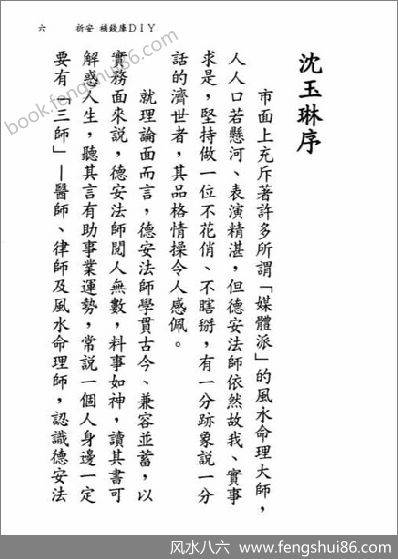 六　祈安　補錢庫DIY
沈玉琳序
市面上充斥著許多所謂「媒體派」的風水命理大師，
人人口若懸河、表演精湛，但德安法師依然故我、實事
求是，堅持做一位不花俏、不瞎掰，有一分跡象說一分
話的濟世者，其品格情操令人感佩。
就理論面而言，德安法師學貫古今、兼容並蓄，以
實務面來說，德安法師閱人無數，料事如神，讀其書可
解惑人生，聽其言有助事業運勢，常說一個人身邊一定
要有「三師」—醫師、律師及風水命理師，認識德安法
book.fengshui86.com
风水八六 - www.fengshui86.com